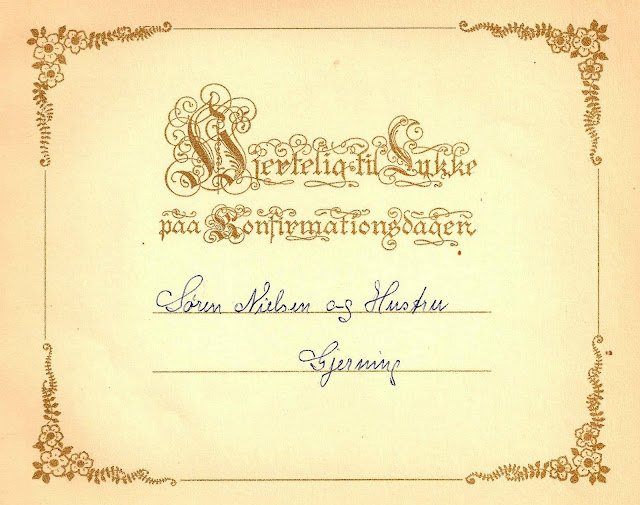 Hjertelig til Lykke
paa Konfirmationsdagen
Søren Nielsen og Hustru
Gjerning